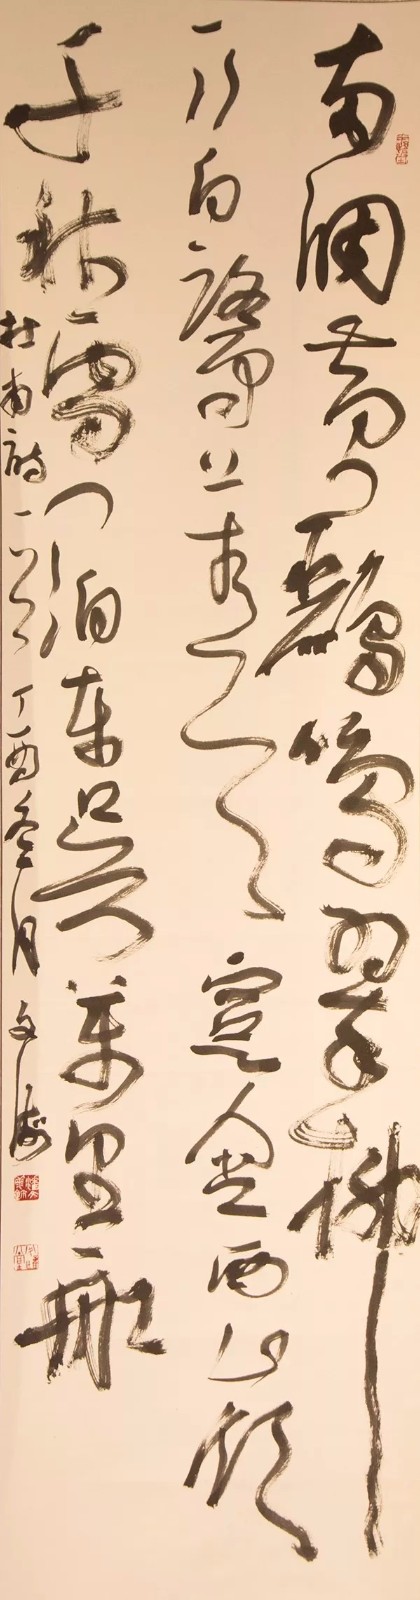 兩個黃鸝鳴翠柳
一行白鷺上青天窗含西嶺
千秋雪門泊東吳萬里船
杜甫詩一首 丁酉冬月 文